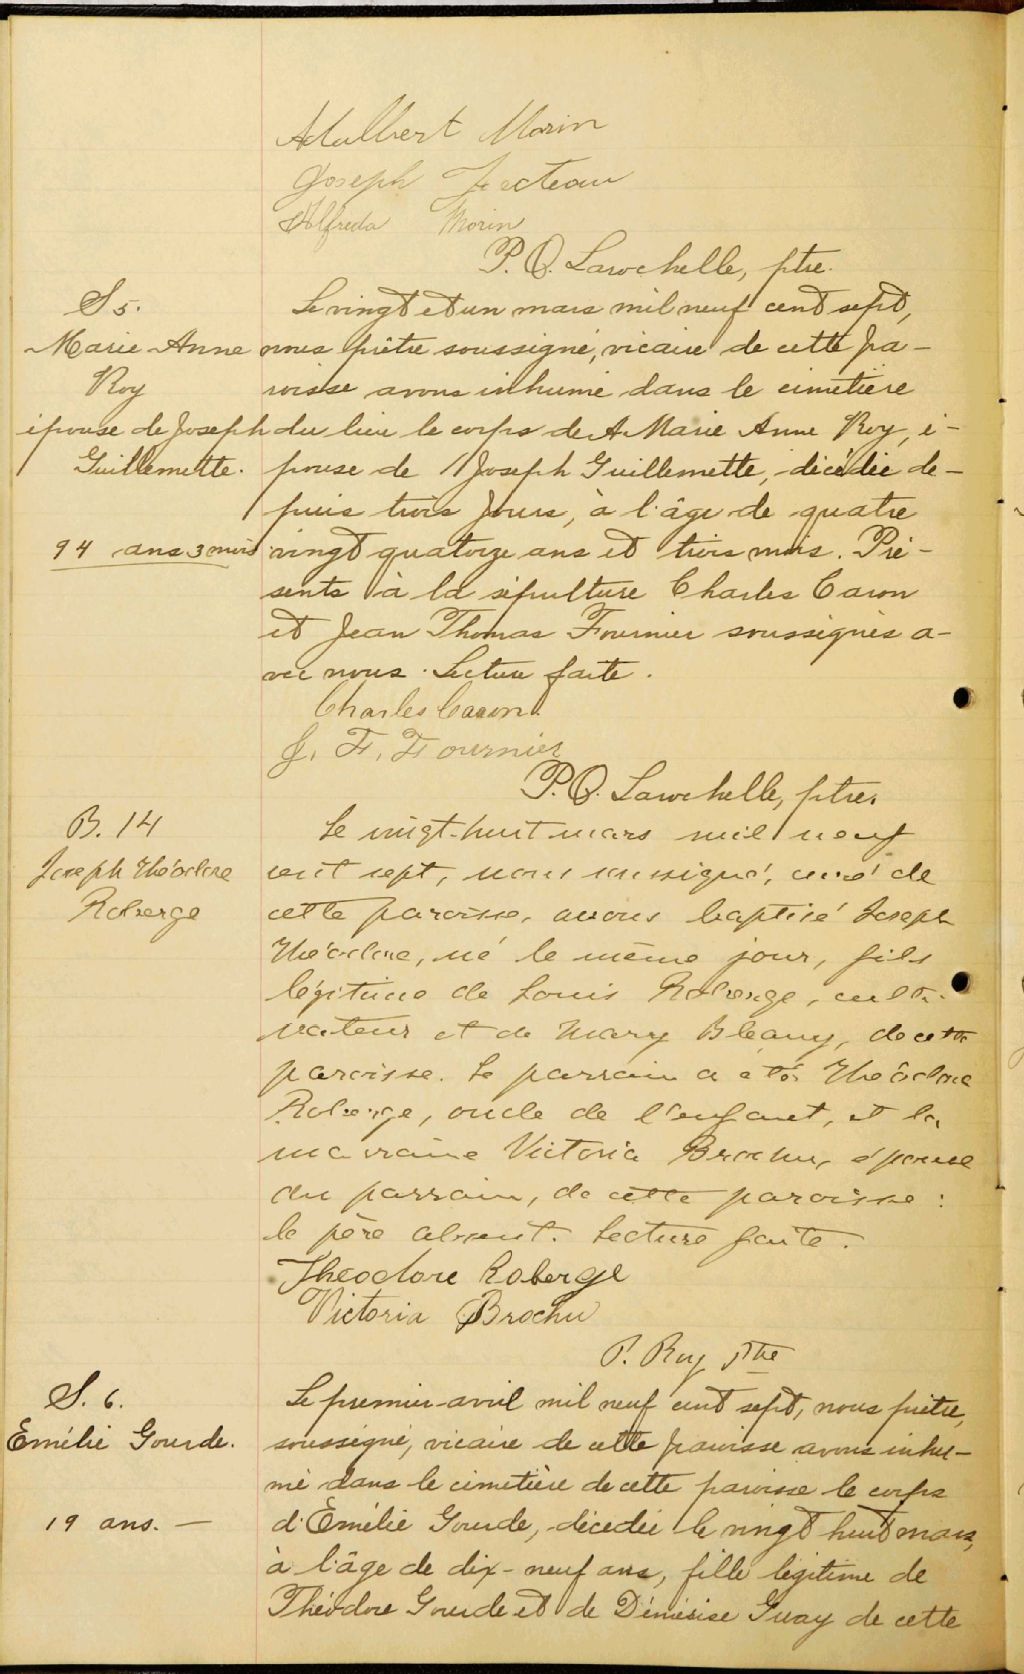 Adalbert Morin
Joseph Fecteau
Alfreda Morin
P. O. Larochelle, ptre.
S 5.
Marie Anne
Roy
épouse de Joseph
Guillemette.
94 ans 3 mois
Le vingt et un mars mil neuf cent sept,
nous prêtre soussigné, vicaire de cette pa-
roisse avons inhumé dans le cimetière
du lieu le corps de Marie Anne Roy, é-
pouse de Joseph Guillemette, décédée de-
puis trois jours, à l'âge de quatre
vingt quatorze ans et trois mois. Pré-
sents à la sépulture Charles Caron
et Jean Thomas Fournier soussignés a-
vec nous. Lecture faite.
Charles Caron
J. T. Fournier
P. O. Larochelle, ptre.
B. 14
Joseph Théodore
Roberge
Le vingt-huit mars mil neuf
cent sept, nous soussigné, curé de
cette paroisse, avons baptisé Joseph
Théodore, né le même jour, fils
légitime de Louis Roberge, culti-
vateur et de Mary Bleany, de cette
paroisse. Le parrain a été Théodore
Roberge, oncle de l'enfant, et la
marraine Victoria Brochu, épouse
du parrain, de cette paroisse :
le père absent. Lecture faite.
Theodore Roberge
Victoria Brochu
P. Roy ptre
S. 6.
Emélie Gourde.
19 ans. —
Le premier avril mil neuf cent sept, nous prêtre,
soussigné, vicaire de cette paroisse avons inhu-
mé dans le cimetière de cette paroisse le corps
d'Emélie Gourde, décédée le vingt huit mars,
à l'âge de dix-neuf ans, fille légitime de
Théodore Gourde et de Démérise Guay de cette